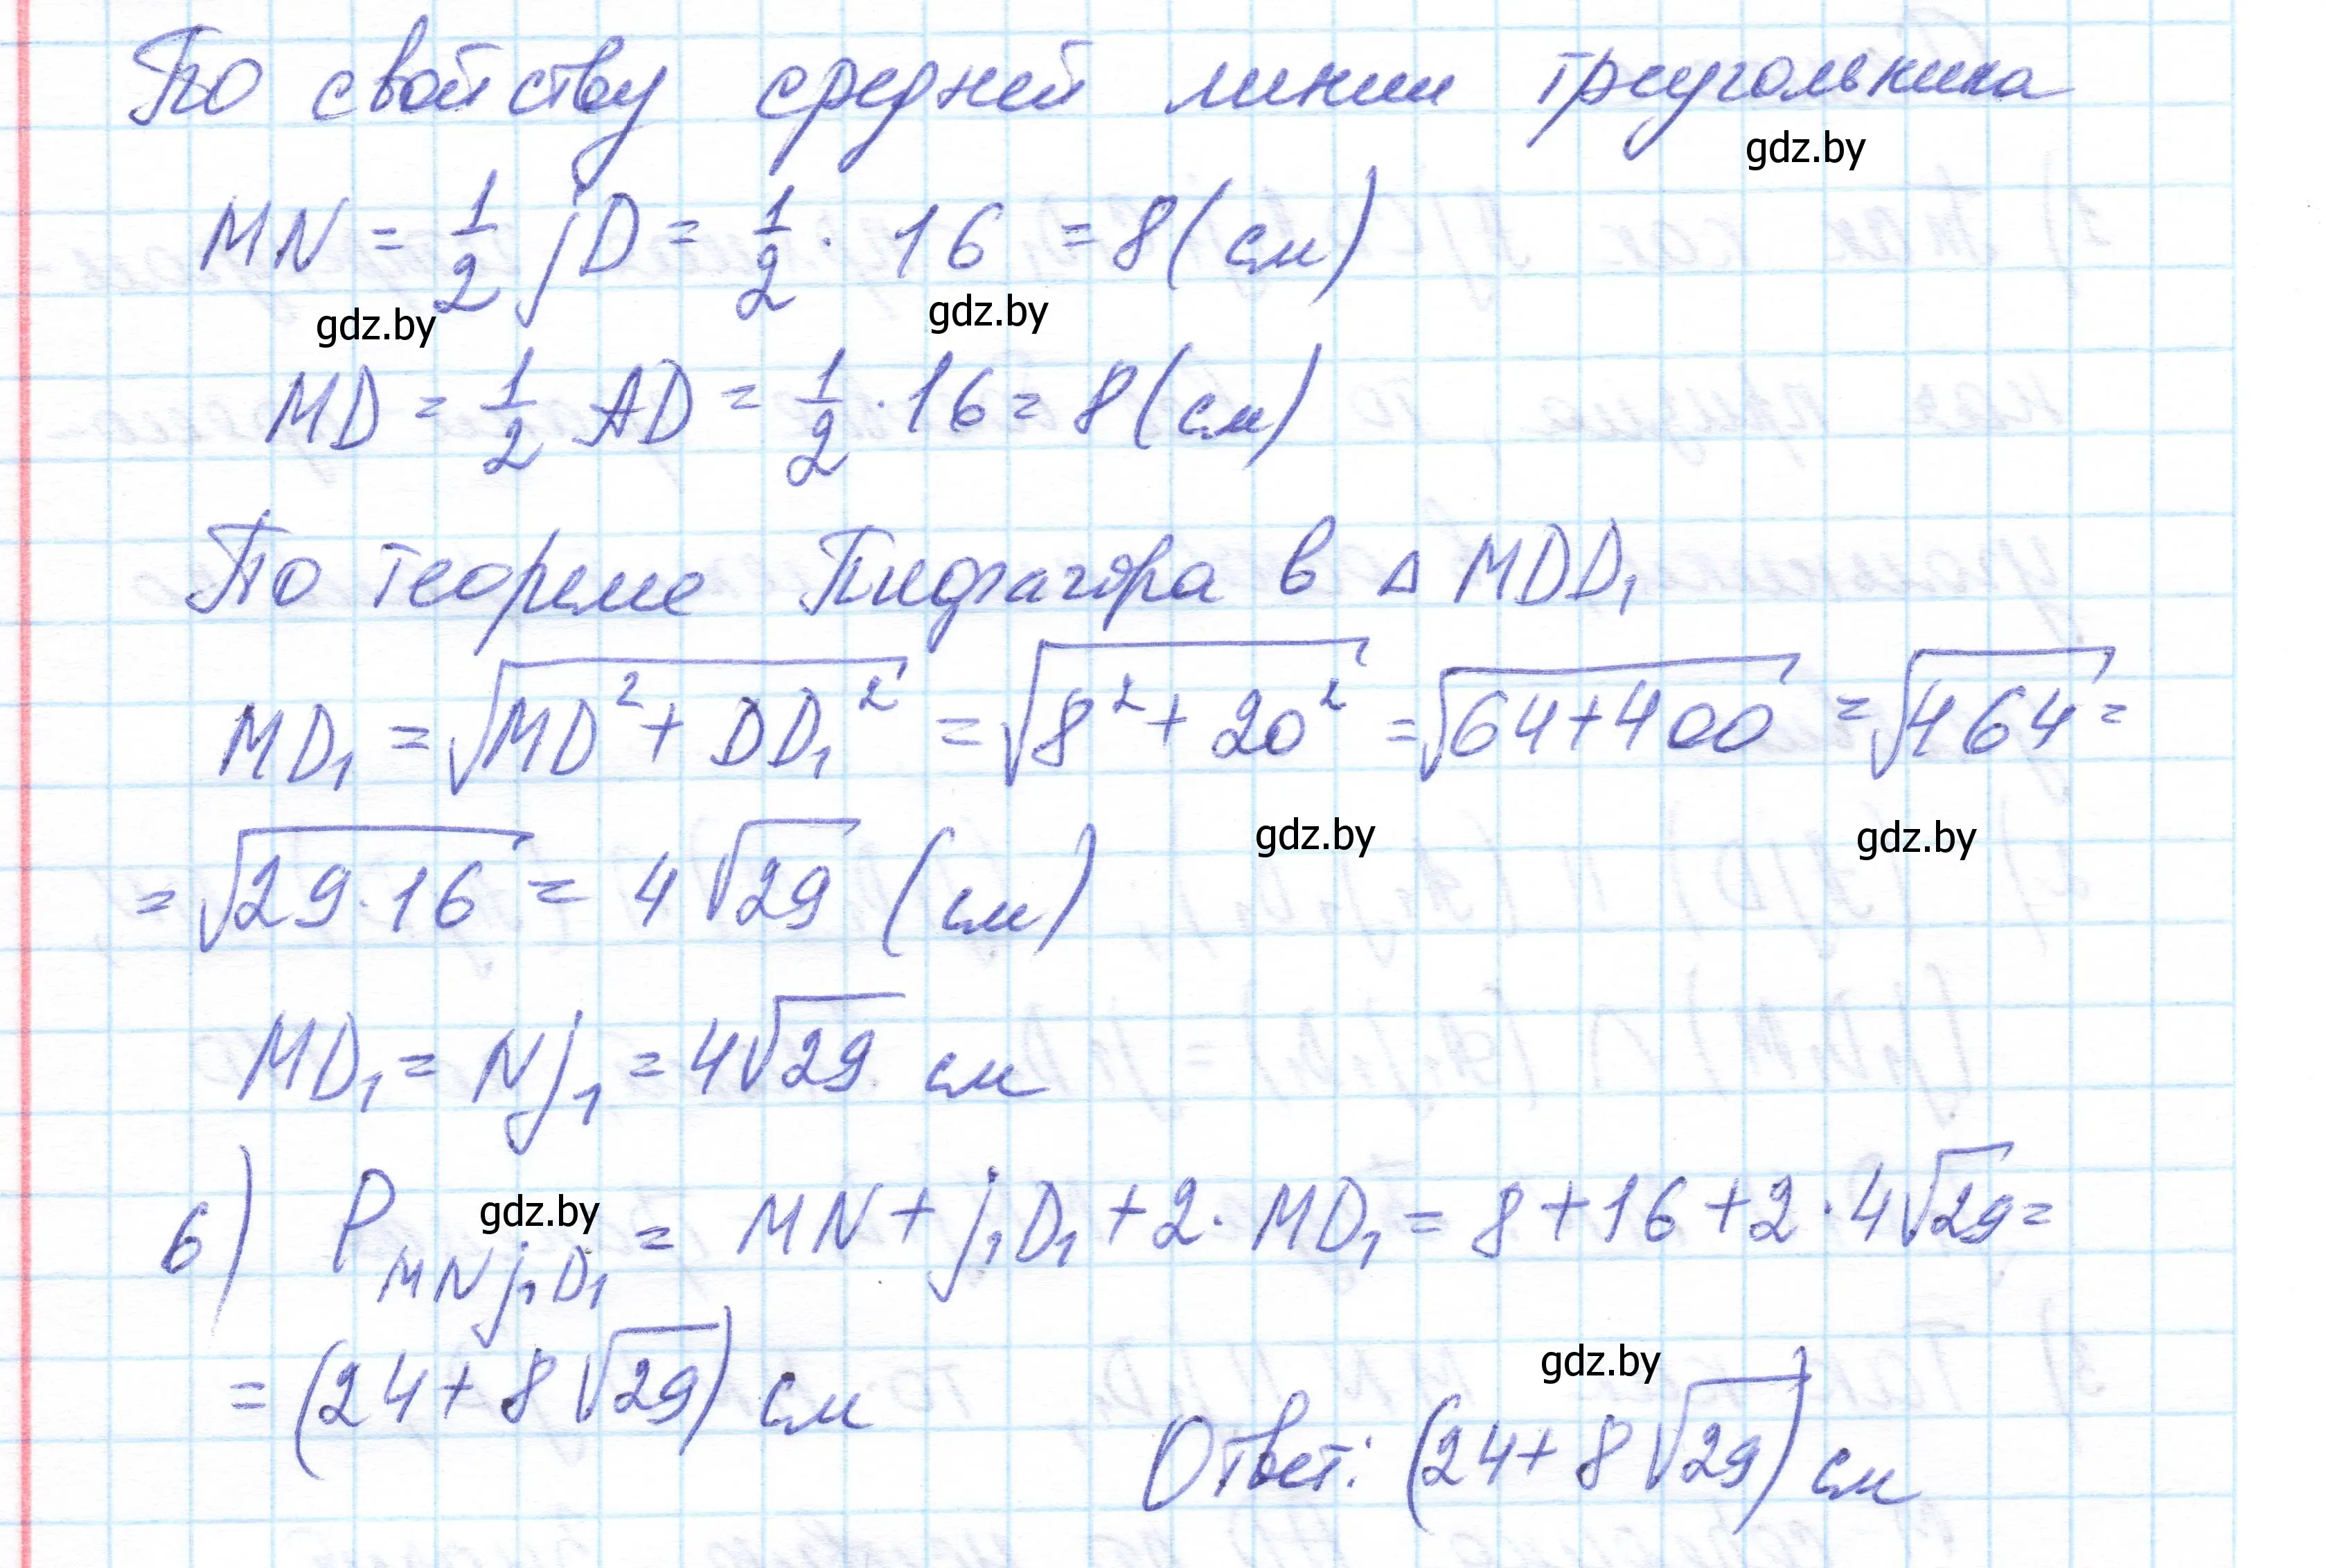 По свойству средней линии треугольника
gdz.by
MN = 1/2 jD = 1/2 · 16 = 8 (см)
gdz.by gdz.by
MD = 1/2 AD = 1/2 · 16 = 8 (см)
По теореме Пифагора в △ MDD₁
MD₁ = √(MD² + DD₁²) = √(8² + 20²) = √(64+400) = √464 =
= √(29·16) = 4√29 (см)
gdz.by gdz.by
MD₁ = Nj₁ = 4√29 см
6) P_MNj₁D₁ = MN + j₁D₁ + 2· MD₁ = 8 + 16 + 2 · 4√29 =
gdz.by
= (24 + 8√29) см
gdz.by
Ответ: (24 + 8√29) см